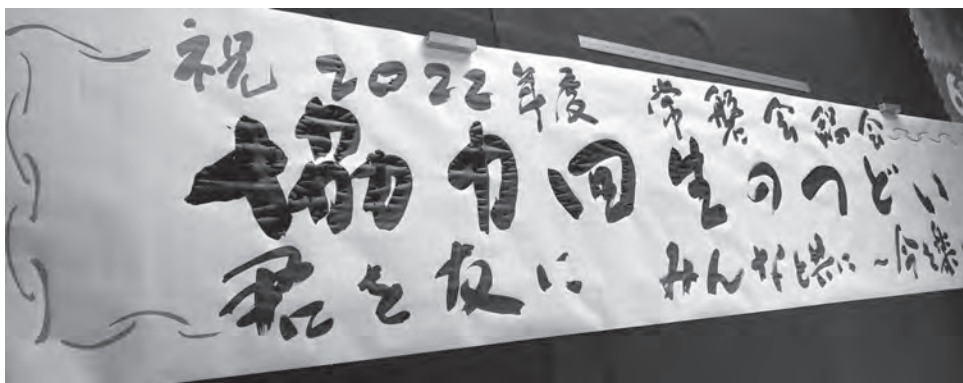 祝 2022年度 常磐会総会
協力回生のつどい
君を友に みんなと共に ~今を